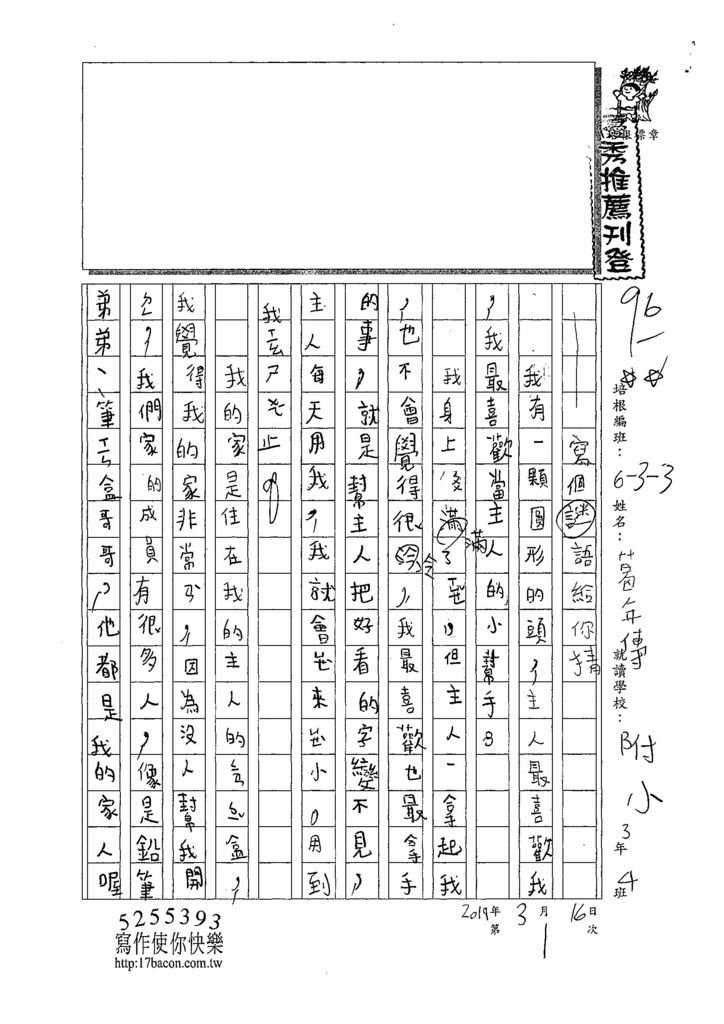 秀推薦刊登
96
培根編班：6-3-3 姓名： 就讀學校：附小 3年4班
2019年3月16日
第1次
寫個謎語給你猜
我有一顆圓形的頭，主人最喜歡我
，我最喜歡當主人的小幫手。
我身上 滿了 ，但主人一拿起我
，也不會覺得很 ，我最喜歡也最拿手
的事，就是幫主人把好看的字變不見，
主人每天用我，我就會 來 小。用到
我 ㄕ 止。
我的家是住在我的主人的 盒，
我覺得我的家非常 ，因為沒人幫我開
，我們家的成員有很多人，像是鉛筆
弟弟、筆 盒哥哥，他都是我的家人喔
5255393
寫作使你快樂
http:17bacon.com.tw